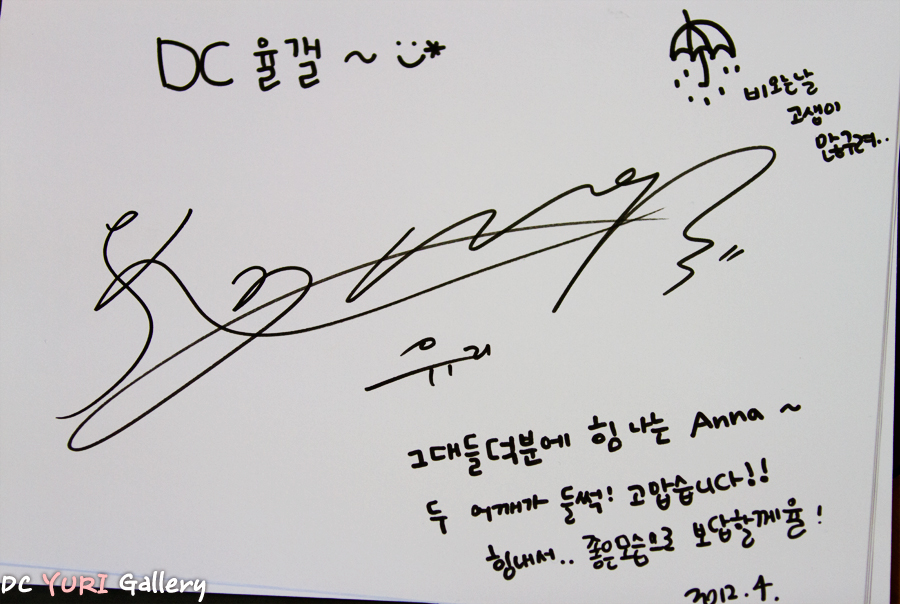 DC 율갤 ~
비오는날
고생이
많구려..
유리
그대들덕분에 힘나는 Anna ~
두 어깨가 들썩! 고맙습니다!!
힘내서.. 좋은모습으로 보답할께율!
2012.4.
DC YURI Gallery